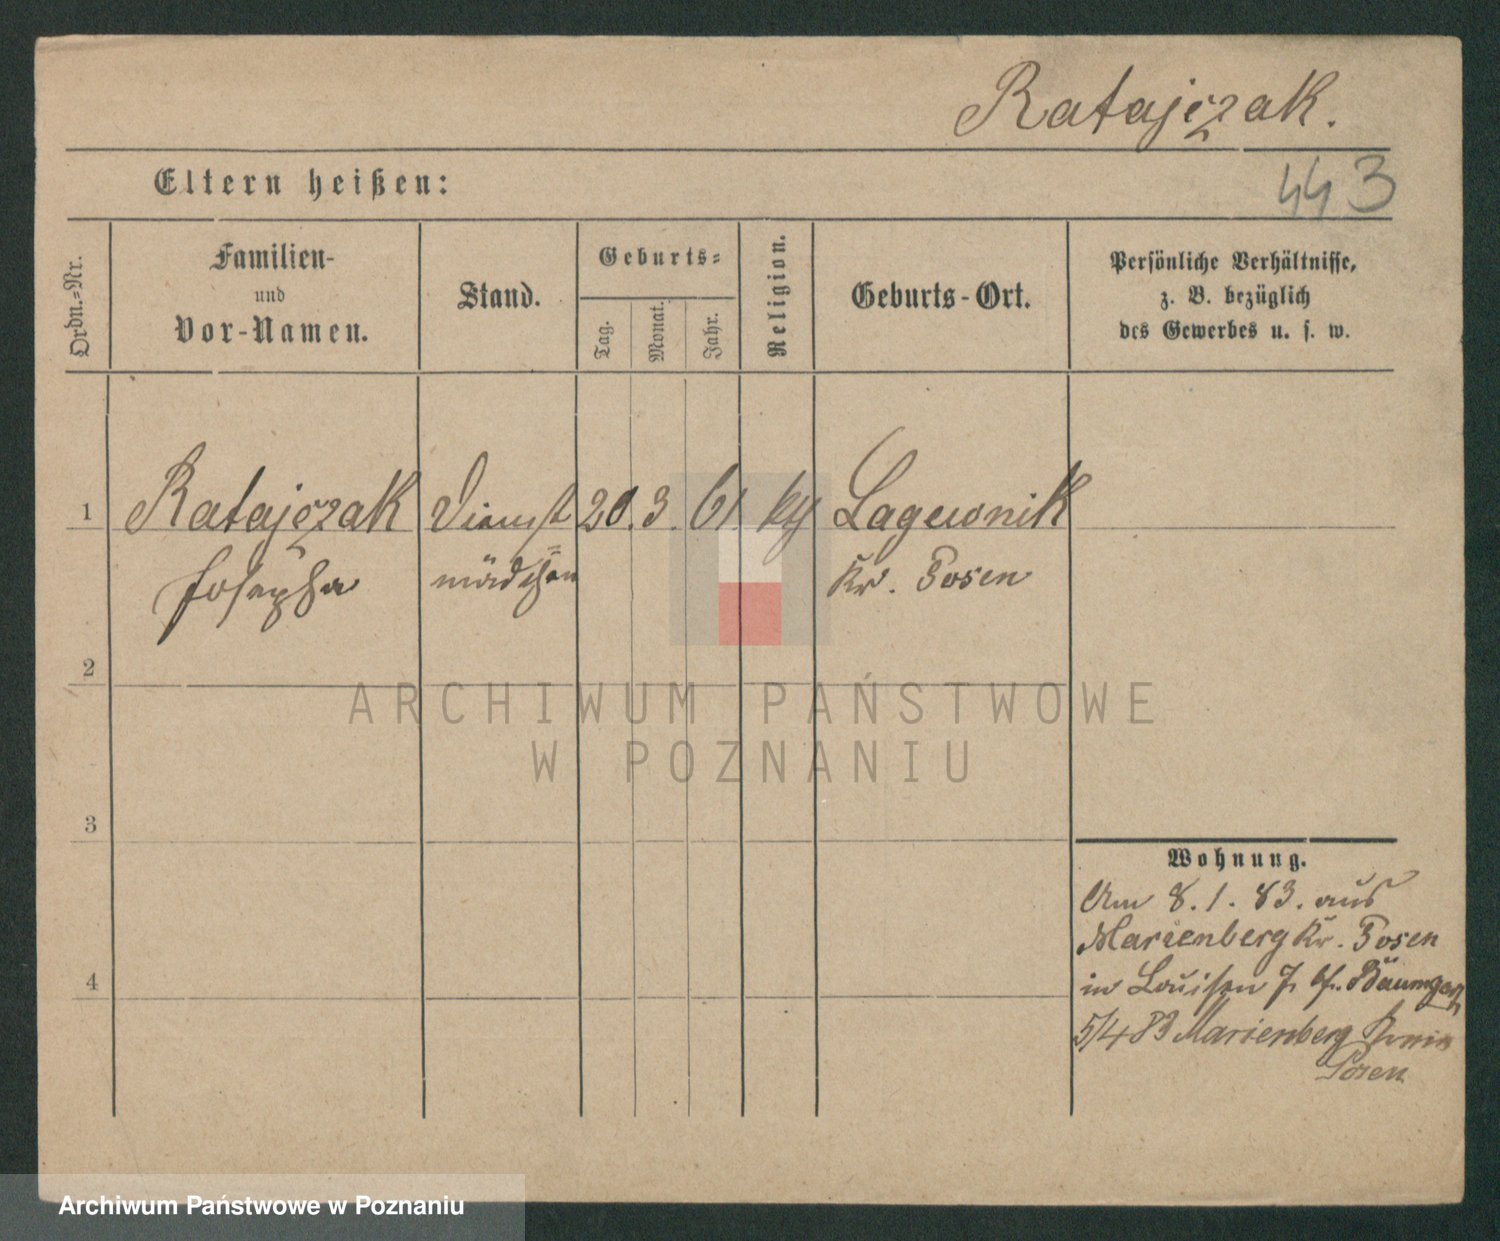 Ratajczak.
443
Eltern heißen:
Ordn.-Nr.
Familien-
und
Vor-Namen.
Stand.
Geburts-
Tag.
Monat.
Jahr.
Religion.
Geburts-Ort.
Persönliche Verhältnisse,
z. B. bezüglich
des Gewerbes u. s. w.
1 Ratajczak Dienst 20. 3. 61 Lagewnik
Josepha mädchen Kr. Posen
2
3
4
Wohnung.
Am 8. 1. 83. aus
Marienberg Kr. Posen
in Louisen 7
5/4 83 Marienberg Kreis
Posen
ARCHIWUM PAŃSTWOWE
W POZNANIU
Archiwum Państwowe w Poznaniu